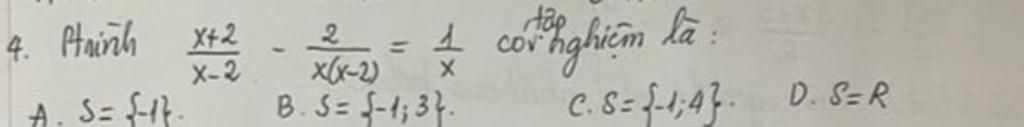 4. Ptrình x+2/x-2 - 2/x(x-2) = 1/x có tập nghiệm là:
A. S={-1}. B. S={-1;3}. C. S={-1;4}. D. S=R